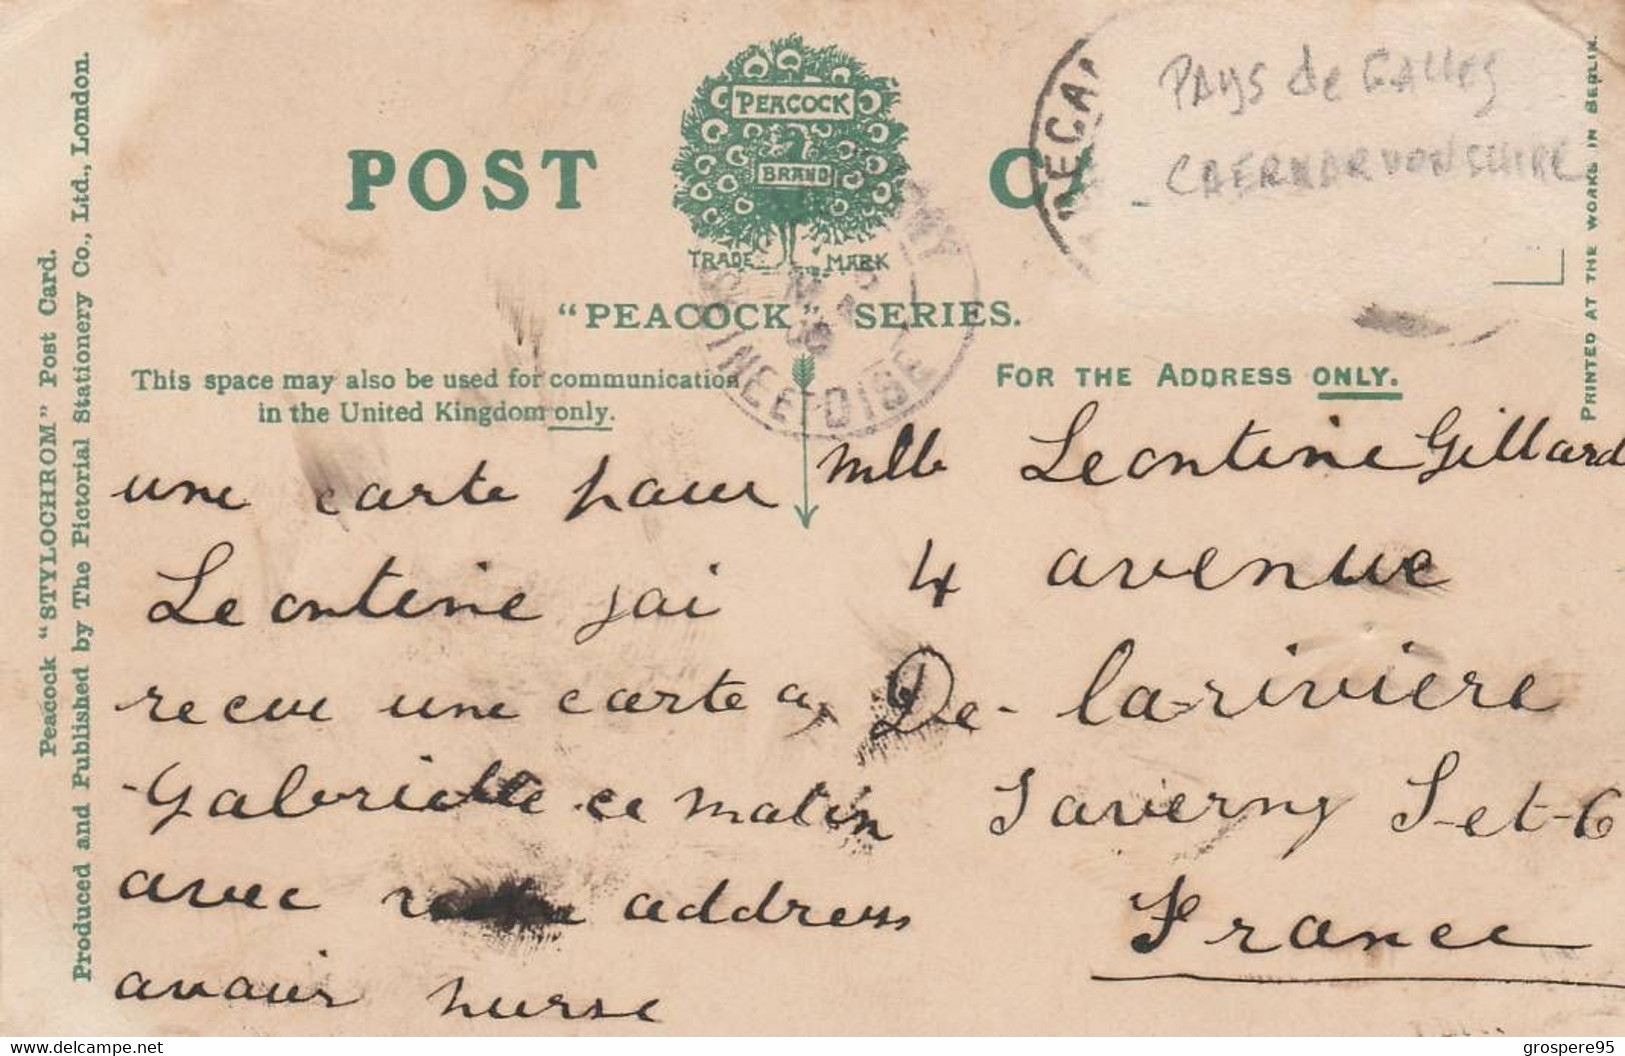 Peacock "STYLOCHROM" Post Card.
Produced and Published by The Pictorial Stationery Co., Ltd., London.
POST
PEACOCK
BRAND
TRADE MARK
"PEACOCK" SERIES.
This space may also be used for communication
in the United Kingdom only.
FOR THE ADDRESS ONLY.
PRINTED AT THE WORKS IN BERLIN.
Pays de Galles
CAERNARVONSHIRE
SEINE ET OISE
une carte pour
Leontine jai
recue une carte a
Gabrielle ce matin
avec address
avair nurse
Mlle Leontine Gillard
4 avenue
De la riviere
Taverny S-et-O
France
delcampe.net
grospere95